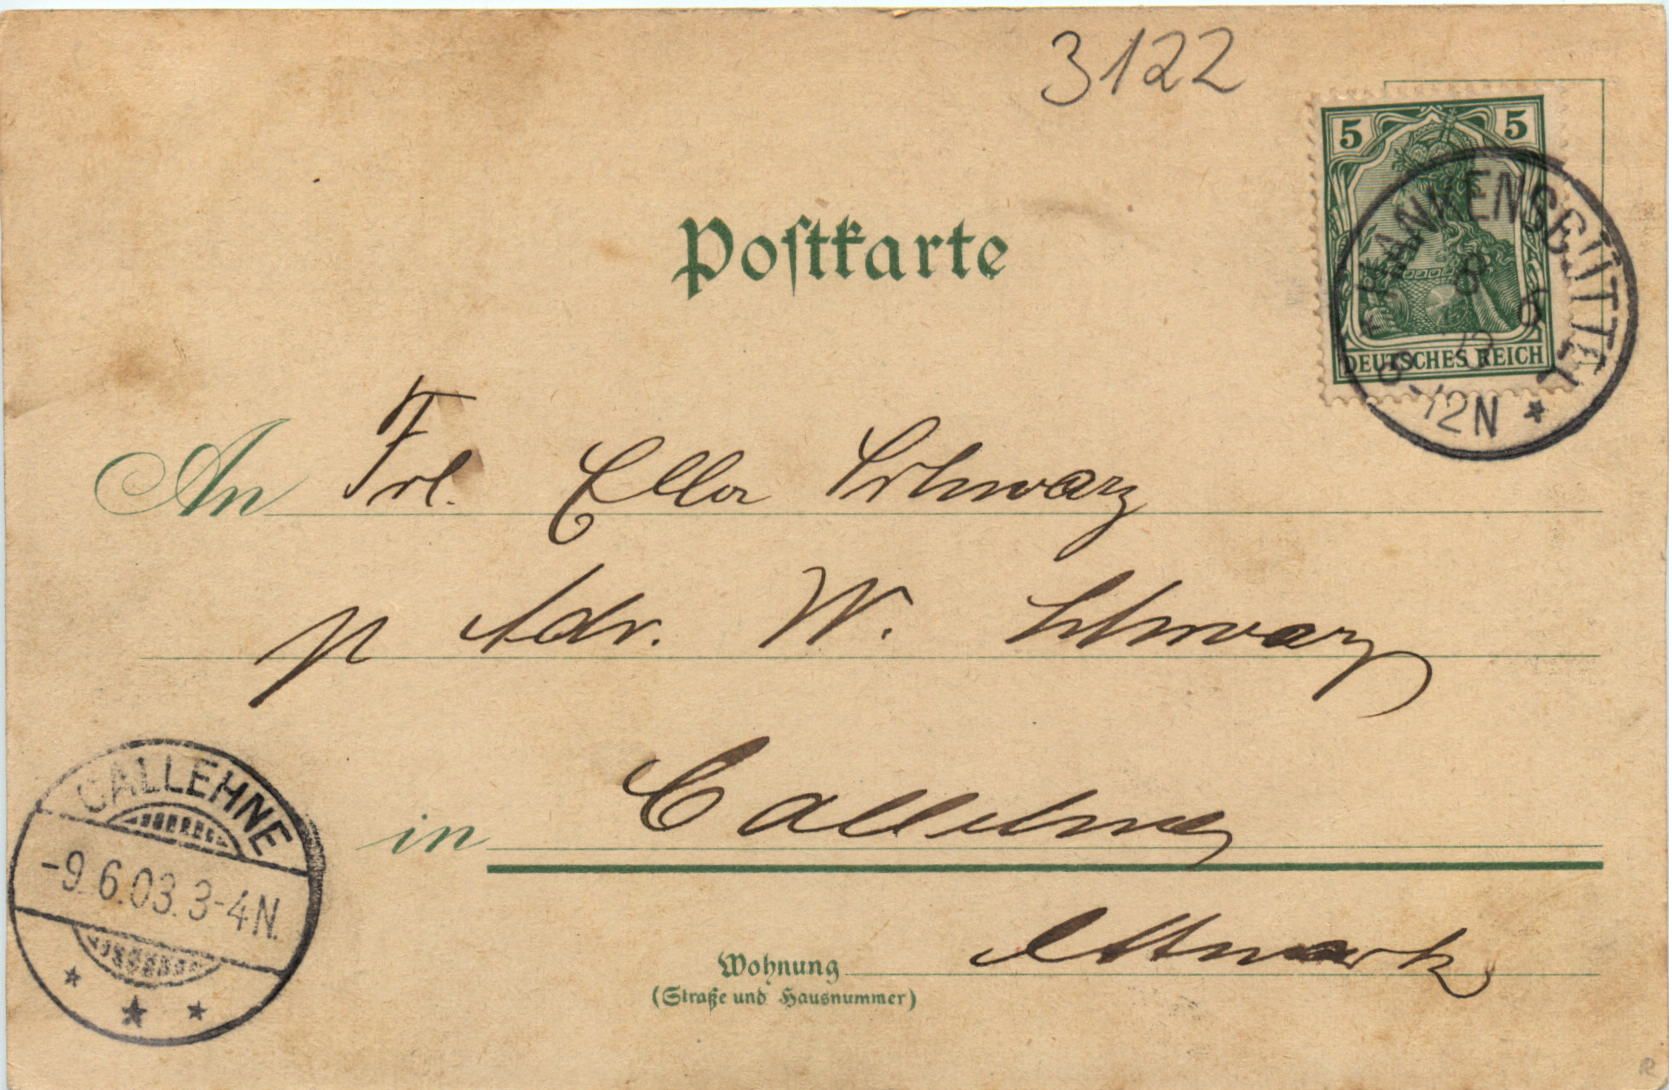 3122
5 5
FRANKENSBÜTTEL
8
6
03
8-12N *
DEUTSCHES REICH
Postkarte
An Frl. Ella Schwarz
p Adr. W. Schwarz
CALLEHNE
-9.6.03.3-4N.
in Callehne
Altmark
Wohnung
(Straße und Hausnummer)